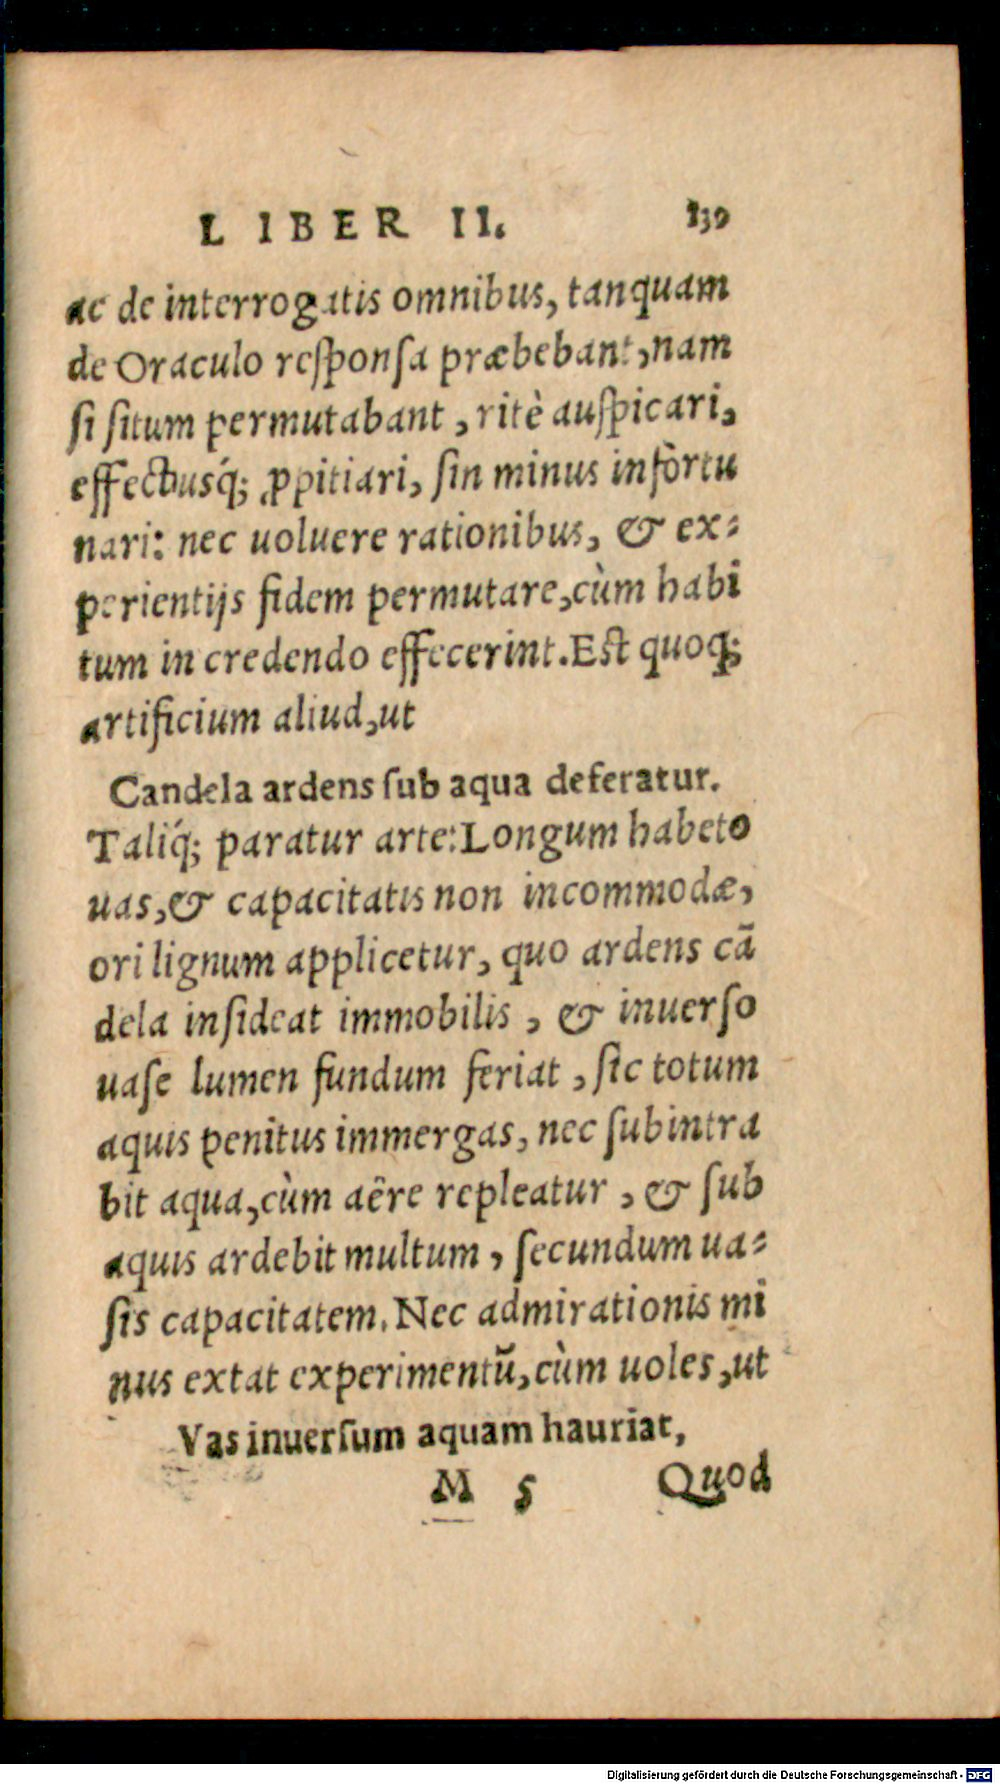 LIBER II. 139
ac de interrogatis omnibus, tanquam
de Oraculo reſponſa præbebant, nam
ſi ſitum permutabant, ritè auſpicari,
effectusq́; ꝓpitiari, ſin minus infortu
nari: nec uoluere rationibus, & ex-
perientijs fidem permutare, cùm habi
tum in credendo effecerint. Est quoq;
artificium aliud, ut
Candela ardens ſub aqua deferatur.
Taliq́; paratur arte: Longum habeto
uas, & capacitatis non incommodæ,
ori lignum applicetur, quo ardens cã
dela inſideat immobilis, & inuerſo
uaſe lumen fundum feriat, ſic totum
aquis penitus immergas, nec ſubintra
bit aqua, cùm aëre repleatur, & ſub
aquis ardebit multum, ſecundum ua-
ſis capacitatem. Nec admirationis mi
nus extat experimentũ, cùm uoles, ut
Vas inuerſum aquam hauriat,
M 5 Quod
Digitalisierung gefördert durch die Deutsche Forschungsgemeinschaft - DFG